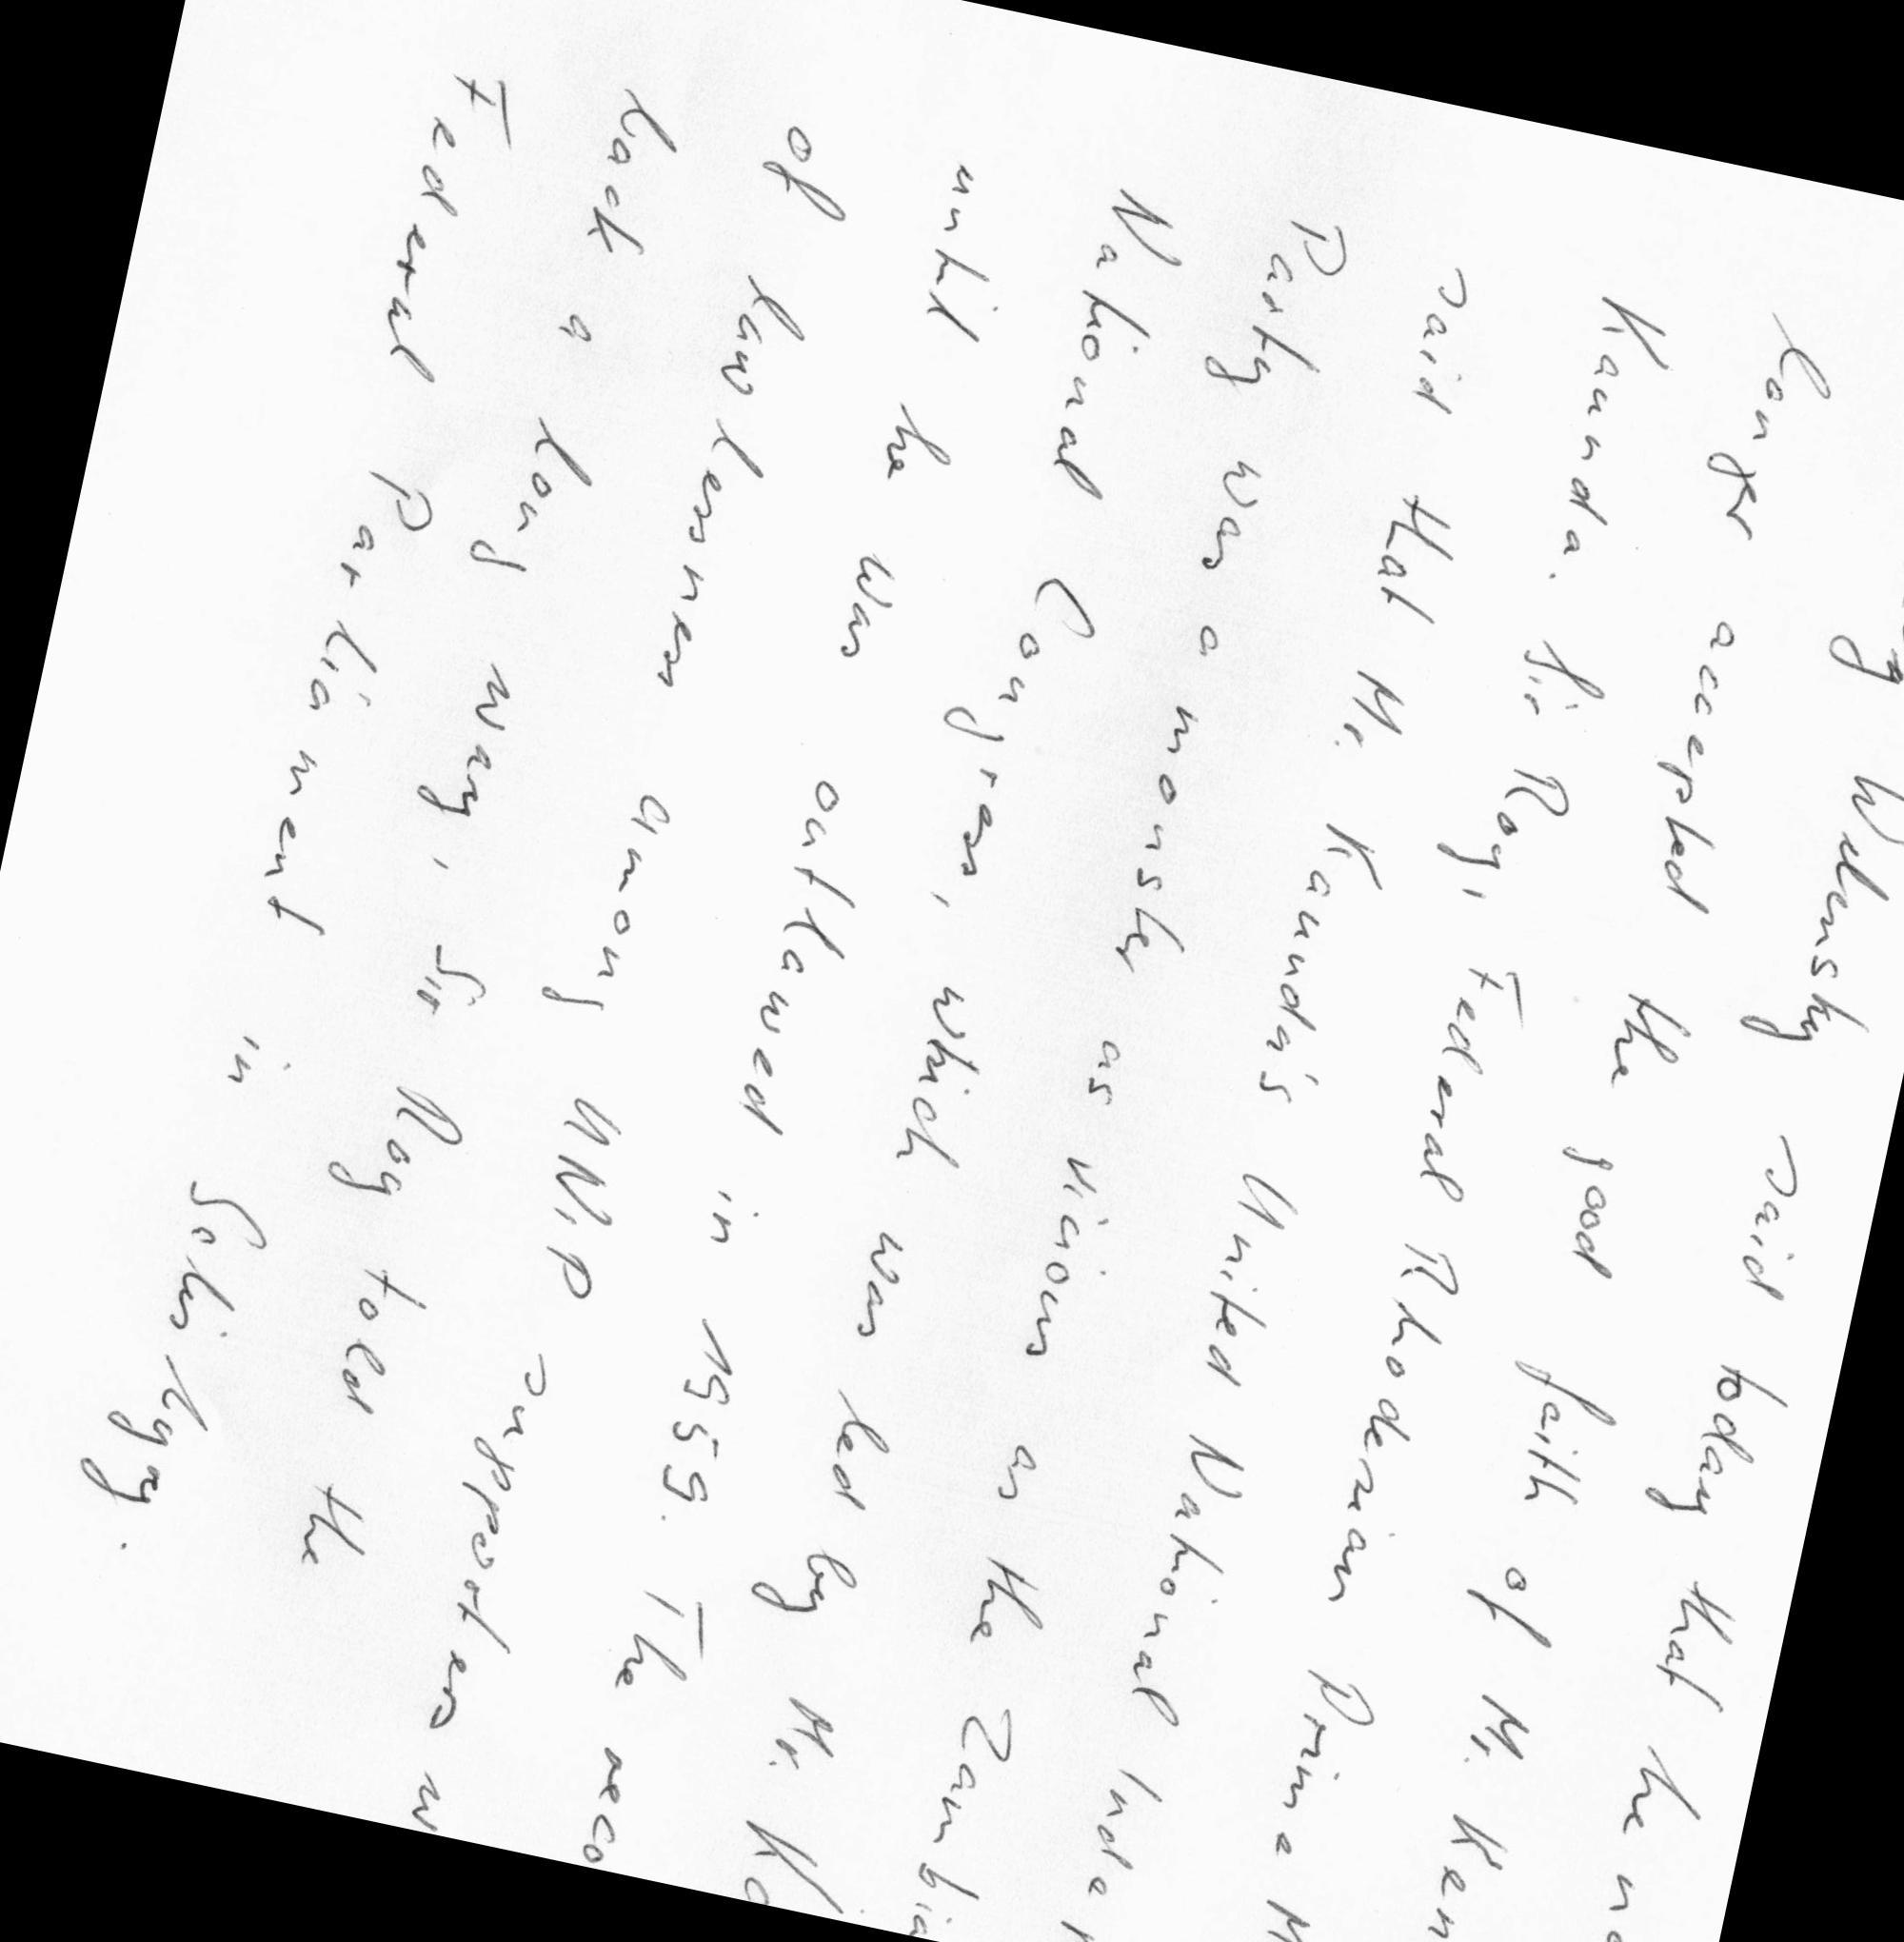 Welensky said today that he no
longer accepted the good faith of Mr. Ken
Kaunda. Sir Roy, Federal Rhodesian Prime M
said that Mr. Kaunda's United National Indep
Party was a monster as vicious as the Zambia
National Congress, which was led by Mr. Ka
until he was outlawed in 1959. The reco
of lawlessness among UNIP supporters w
back a long way, Sir Roy told the
Federal Parliament in Salisbury.